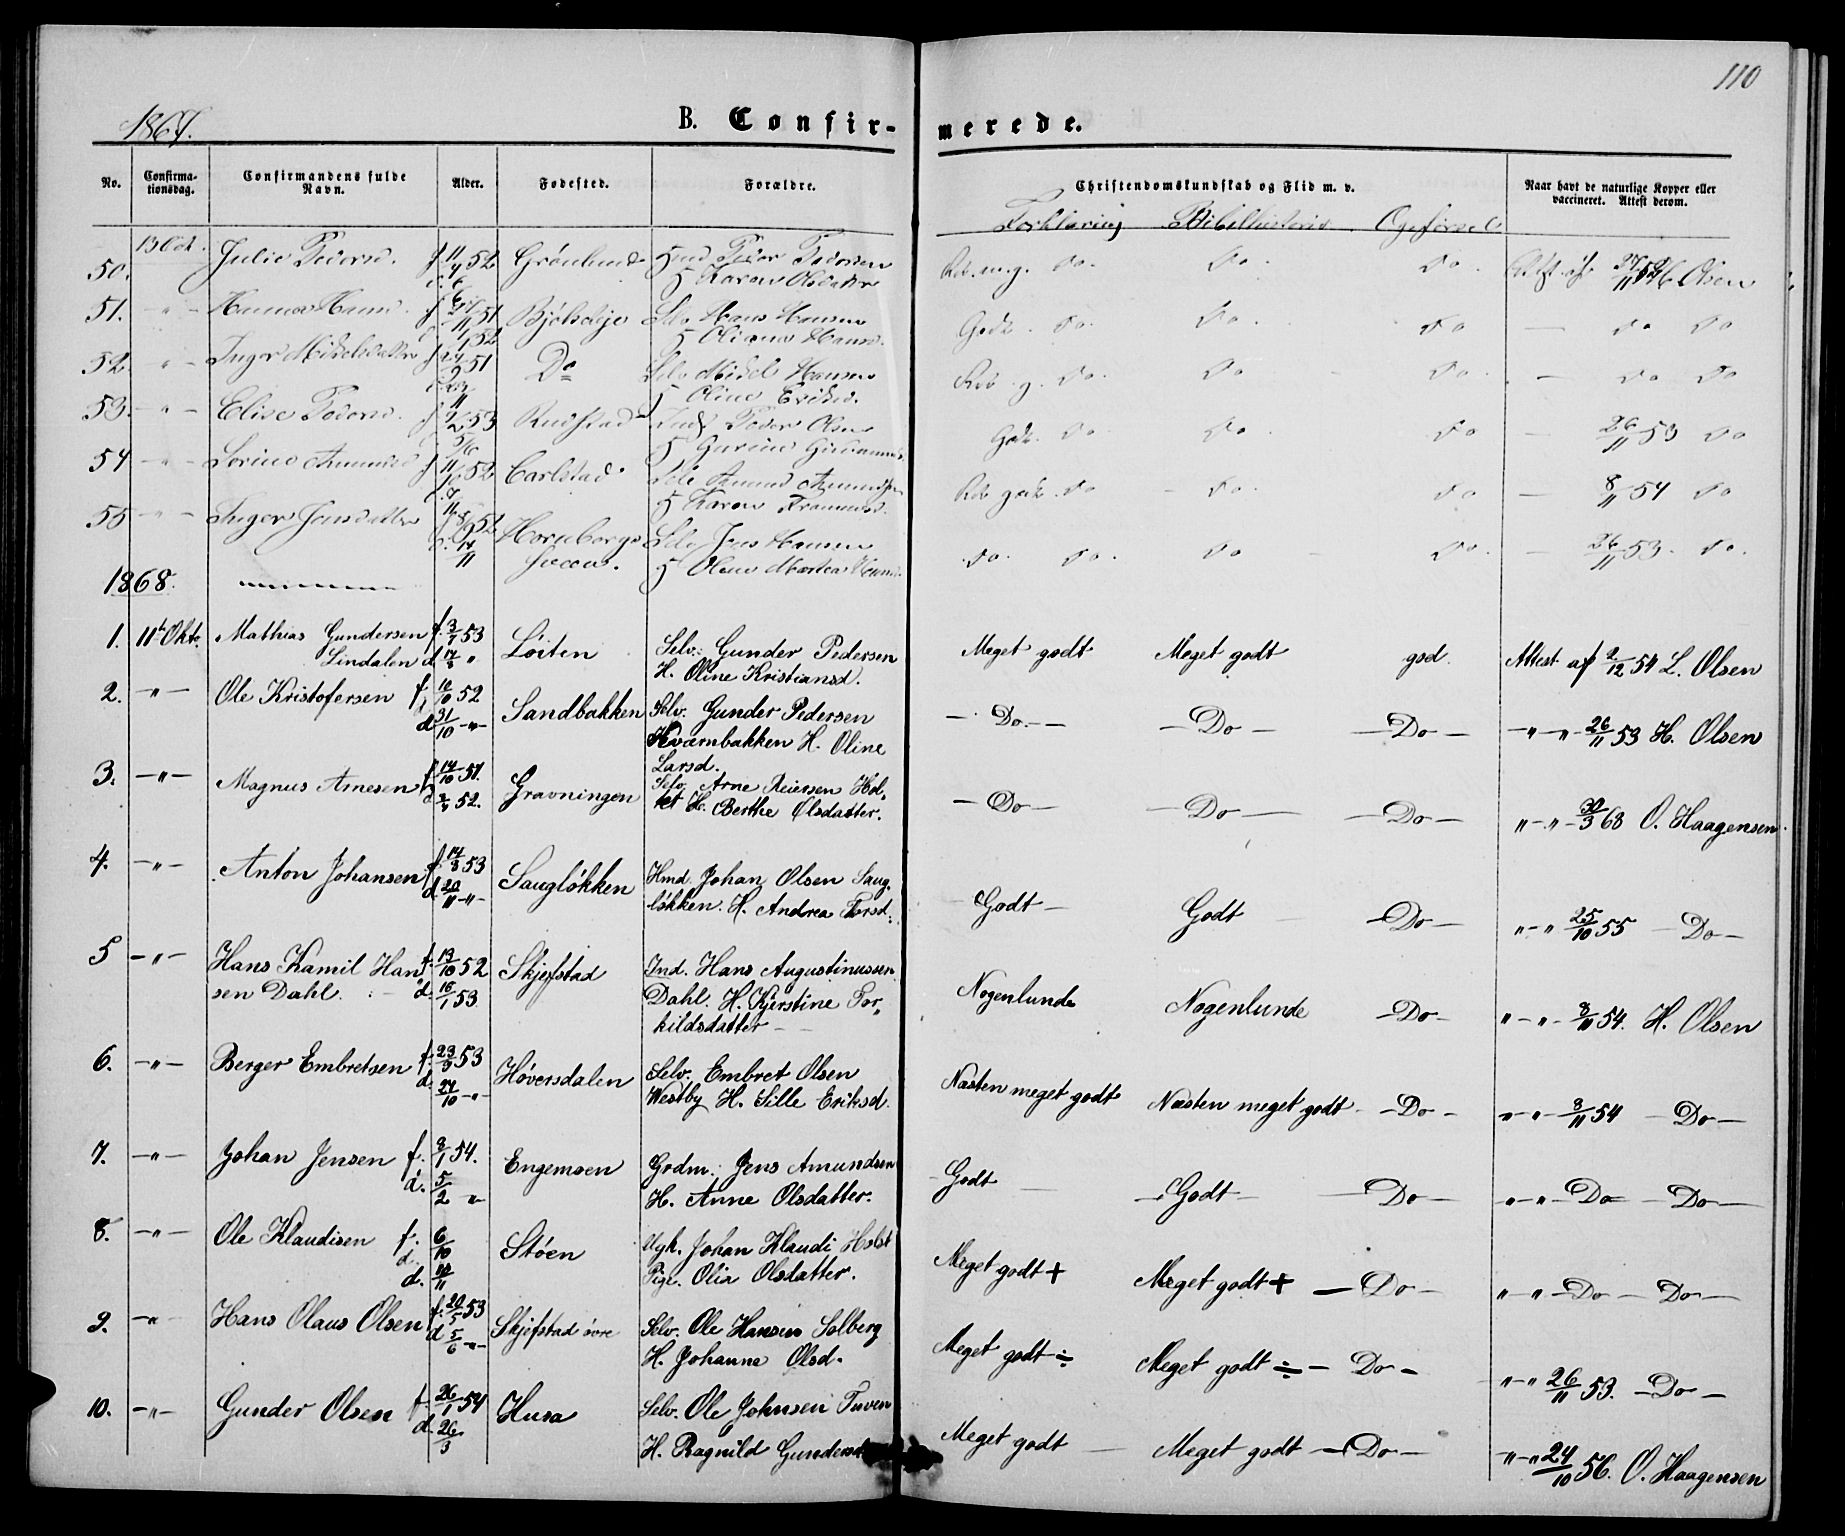 110
1867.
B. Confir-
merede.
No.
Confirma-
tionsdag.
Confirmandens fulde
Navn.
Alder.
Fødested.
Forældre.
Christendomskundskab og Flid m. v.
Naar havt de naturlige Kopper eller
vaccineret. Attest derom.
Forklaring Bibelhistorie Opførsel
50. 13 Oct. Julie Pedersd. f 11/4 52 Grønlund Peder Pedersen
H Karen Olsdatter
Do. Do. Do. 27/11 H Olsen
51. -"- Hanna Hansd. f 51 Hans Hansen
H Oliana Hansd.
Godt. Do. Do. Do - Do Do
52. -"- Inger Mikelsdatter f 24/9 51 Do Selv Mikel Hansen
H Oline Eriksd.
g. Do. Do Do. - Do Do
53. -"- Elise Pedersd. f 53 Rudstad Peder Olsen
H
Godt. Do. Do. Do - 26/11 53 Do
54 -"- Lorine Amundsd f 11/10 52 Carlstad Amund Amundsen
H Karen
godt. Do - Do. Do - 8/11 54 Do
55 -"- Inger Jensdatter 52 Hornborgs- Selv Jens Hansen
d. 14/11 sveen. H Oline Marthea
Do. Do. Do - Do. - 26/11 53. Do.
1868.
1. 11te Okto. Mathias Gundersen f. 3/7 53 Løiten Selv. Gunder Pedersen
Lindalen d 14/8 " H. Oline Kristiansd.
Meget godt Meget godt god. Attest af 2/12 54 L. Olsen
2. -"- Ole Kristofersen f. 10/10 52 Sandbakken Selv. Gunder Pedersen
d 31/10 -"- Kværnbakken H. Oline
Larsd.
- Do. - - Do - - Do - -"-"- 26/11 53 H. Olsen
3. -"- Magnus Arnesen f 14/10 51. Gravningen Selv. Arne Reiersen Hol-
52. tet H. Berthe Olsdatter.
- Do - - Do - - Do - "-"- 30/3 68 O. Haagensen.
4. -"- Anton Johansen f. 14/8 53 Saugløkken Hmd. Johan Olsen Saug-
d. 20/11 -"- løkken. H. Andrea Torsd.
Godt - Godt - Do - "-" 25/10 55 - Do -
5 -"- Hans Kamil Han- f. 13/10 52 Skjefstad Ind. Hans Augustinussen
sen Dahl. d. 16/1 53 Dahl. H. Kjerstine Tor-
kildsdatter -
Nogenlunde Nogenlunde - Do - "-"- 8/11 54. H. Olsen
6. -"- Berger Embretsen f. 23/9 53 Høversdalen Selv. Embret Olsen
d. 24/10 -"- Westby H. Sille Eriksd.
Næsten meget godt Næsten meget godt - Do - "-"- 8/11 54 - Do -
7. -"- Johan Jensen f. 8/1 54. Engemoen Grdm. Jens Amundsen
d. 5/2 " H. Anne Olsdatter.
Godt - Godt - - Do - "-"- Do - Do -
8. -"- Ole Klaudisen f. 6/10 Støen Ugk. Johan Klaudi Holst
d.
d. 10/11 Pige. Olia Olsdatter.
Meget godt + Meget godt + - Do - "-"- Do - Do -
9. -"- Hans Olaus Olsen f. 20/5 53 Skjefstad øvre Selv. Ole Hansen Solberg
d 5/6 -"- H. Johanne Olsd.
Meget godt ÷ Meget godt ÷ - Do - "-" 26/11 53. - Do -
10. -"- Gunder Olsen f. 26/1 54 Husa Selv. Ole Johnsen Tuven
d. 26/3 H. Ragnild Gundersd
Meget godt - Meget godt - Do - "-" 24/10 56. O. Haagensen